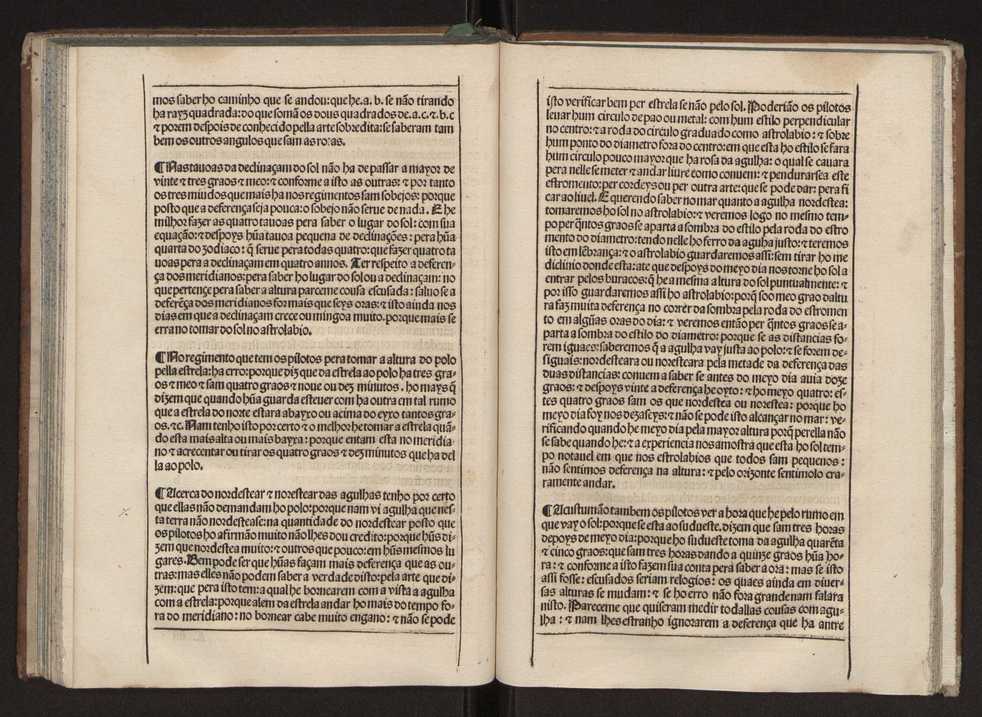 mos saber ho caminho que se andou: que he.a.b. se não tirando
ha rayz quadrada: do que somã os dous quadrados de.a.c.⁊.b.c
⁊ porem despois de conhecido pella arte sobredita: se saberam tam
bem os outros angulos que sam as ro:as.
¶Nas tauoas da declinaçam do sol não ha de passar a mayor de
vinte ⁊ tres graos ⁊ meo: ⁊ conforme a isto as outras: ⁊ por tanto
os tres miudos que mais ha nos regimentos sam sobejos: porque
posto que a deferença seja pouca: o sobejo não serue de nada. E he
milhor fazer as quatro tauoas pera saber o lugar do sol: com sua
equação: ⁊ despoys hũa tauoa pequena de declinações: pera hũa
quarta do zodiaco: q̃ serue pera todas quatro: que fazer quatro ta
uoas pera a declinaçam em quatro annos. Ter respeito a deferen-
ça dos meridianos: pera saber ho lugar do sol ou a declinaçam: no
que pertençe pera saber a altura parceme cousa escusada: saluo se a
deferẽça dos meridianos for mais que seys oras: ⁊ isto ainda nos
dias em que a declinaçam crece ou mingoa muito. porque mais se
erra no tomar do sol no astrolabio.
¶No regimento que tem os pilotos pera tomar a altura do polo
pella estrela: ha erro: porque diz que da estrela ao polo ha tres gra-
os ⁊ meo ⁊ sam quatro graos ⁊ noue ou dez minutos. ho mays q̃
dizem que quando hũa guarda esteuer com ha outra em tal rumo
que a estrela do norte estara abayxo ou acima do eyxo tantos gra-
os.⁊c. Nam tenho isto por certo ⁊ o melhor he tomar a estrela quã-
do esta mais alta ou mais bayxa: porque entam esta no meridia-
no ⁊ acrecentar ou tirar os quatro graos ⁊ dez minutos que ha del
la ao polo.
¶Acerca do nordestear ⁊ norestear das agulhas tenho por certo
que ellas não demandam ho polo: porque nam vi agulha que nes-
ta terra não nordestease: na quantidade do nordestear posto que
os pilotos ho afirmão muito não lhes dou credito: porque hũs di-
zem que nordestea muito: ⁊ outros que pouco: em hũs mesmos lu
gares. Bem pode ser que hũas façam mais deferença que as ou-
tras: mas elles não podem saber a verdade disto: pela arte que di-
zem: que pera isto tem: a qual he bornearem com a vista a agulha
com a estrela: porque alem da estrela andar ho mais do tempo fo-
ra do meridiano: no bornear cabe muito engano: ⁊ não se pode
isto verificar bem per estrela se não pelo sol. Poderião os pilotos
leuar hum circulo de pao ou metal: com hum estilo perpendicular
no centro: ⁊ a roda do circulo graduado como astrolabio: ⁊ sobre
hum ponto do diametro fora do centro: em que esta ho estilo se fara
hum circulo pouco mayor que ha rosa da agulha: o qual se cauara
pera nelle se meter ⁊ andar liure como conuem: ⁊ pendurarsea este
estromento: per cordeys ou per outra arte: que se pode dar: pera fi
car ao liuel. E querendo saber no mar quanto a agulha nordestea:
tomaremos ho sol no astrolabio: ⁊ veremos logo no mesmo tem-
po per q̃ntos graos se aparta a sombra do estilo pela roda do estro
mento do diametro: tendo nelle ho ferro da aguha justo: ⁊ teremos
isto em lẽbrança: ⁊ o astrolabio guardaremos assi: sem tirar ho me
diclinio donde esta: ate que despoys do meyo dia nos torne ho sol a
entrar pelos buracos: q̃ he a mesma altura do sol puntualmente: ⁊
por isso guardaremos assi ho astrolabio: porq̃ soo meo grao daltu
ra faz muita deferença no correr da sombra pela roda do estromen
to em algũas oras do dia: ⁊ veremos então per q̃ntos graos se a-
parta a sombra do estilo do diametro: porque se as distancias fo-
rem iguaes: saberemos q̃ a agulha vay justa ao polo: ⁊ se forem de-
siguais: nordesteara ou noresteara pela metade da deferença das
duas distancias: conuem a saber se antes do meyo dia auia doze
graos: ⁊ despoys vinte a deferença he oyto: ⁊ ho meyo quatro: es-
tes quatro graos sam os que nordestea ou norestea: porque ho
meyo dia foy nos dezaseys: ⁊ não se pode isto alcançar no mar: ve-
rificando quando he meyo dia pela mayor altura porq̃ perella não
se sabe quando he: ⁊ a experiencia nos amostra que esta ho sol tem-
po notauel em que nos estrolabios que todos sam pequenos:
não sentimos deferença na altura: ⁊ pelo orizonte sentimolo cra-
ramente andar.
¶Acustumão tambem os pilotos ver a hora que he pelo rumo em
que vay o sol: porque se esta ao sudueste. dizem que sam tres horas
depoys de meyo dia: porque ho sudueste toma da agulha quarẽta
⁊ cinco graos: que sam tres horas dando a quinze graos hũa ho-
ra: ⁊ conforme a isto fazem sua conta pera saber a ora: mas se isto
assi fosse: escusados seriam relogios: os quaes ainda em diuer-
sas alturas se mudam: ⁊ se ho erro não fora grande nam falara
nisto. Pareceme que quiseram medir todallas cousas com agu-
lha: ⁊ nam lhes estranho ignorarem a deferença que ha antre